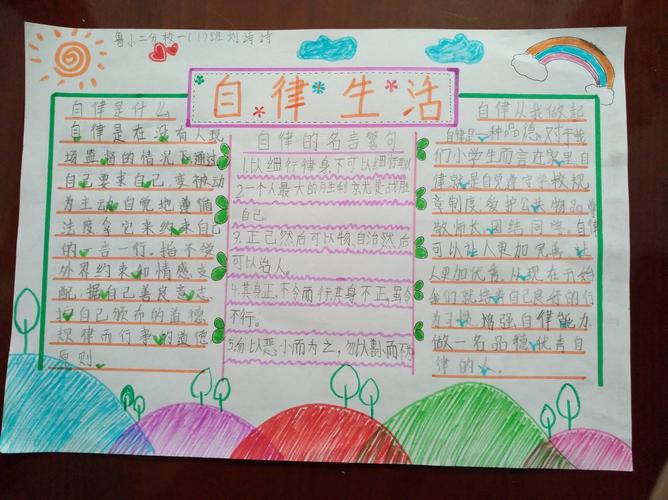 鲁小二分校一(1)班刘诗诗
自律生活
自律是什么
自律是在没有人现
场监督的情况下,通过
自己要求自己,变被动
为主动,自觉地遵循
法度,拿它来约束自己
的一言一行。指不受
外界约束和情感支
配,据自己善良意志,
按自己颁布的道德
规律而行事的道德
原则
自律的名言警句
1.以细行律身,不可以细行取
2一个人最大的胜利就是战胜
自己。
3.正己然后可以物,自治然后
可以治人。
4.其身正,不令而行,其身不正,虽令
不行。
5.勿以恶小而为之,勿以善而不为
自律从我做起
自律是一种品德。对于我
们小学生而言在家里,自
律就是自觉遵守学校规
章制度,爱护公共物品,尊
敬师长,团结同学。自律
可以让人更加完善,让
人更加优秀,从现在开始
我们就培养自己良好的行
为习惯,增强自律能力,
做一名品德优秀自
律的人。